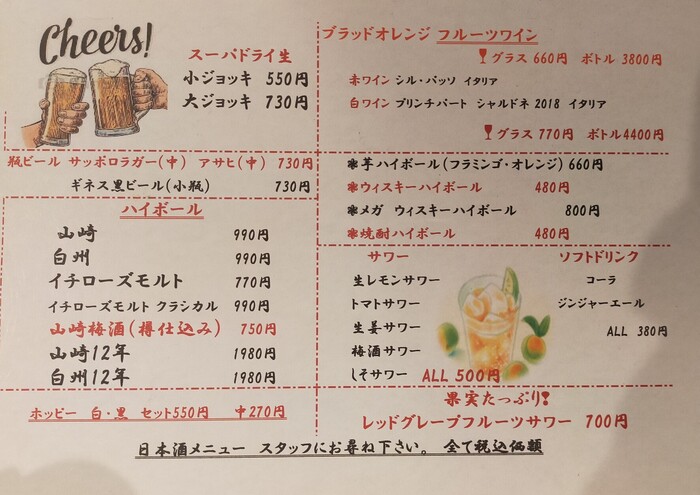 Cheers!
スーパドライ生
小ジョッキ 550円
大ジョッキ 730円
瓶ビール サッポロラガー(中) アサヒ(中) 730円
ギネス黒ビール(小瓶) 730円
ハイボール
山崎 990円
白州 990円
イチローズモルト 770円
イチローズモルト クラシカル 990円
山崎梅酒(樽仕込み) 750円
山崎12年 1980円
白州12年 1980円
ホッピー 白・黒 セット550円 中270円
ブラッドオレンジ フルーツワイン
グラス 660円 ボトル 3800円
赤ワイン シル・パッソ イタリア
白ワイン プリンチパート シャルドネ 2018 イタリア
グラス 770円 ボトル4400円
❃芋ハイボール(フラミンゴ・オレンジ) 660円
❃ウィスキーハイボール 480円
❃メガ ウィスキーハイボール 800円
❃焼酎ハイボール 480円
サワー
生レモンサワー
トマトサワー
生姜サワー
梅酒サワー
しそサワー ALL 500円
ソフトドリンク
コーラ
ジンジャーエール
ALL 380円
果実たっぷり!
レッドグレープフルーツサワー 700円
日本酒メニュー スタッフにお尋ね下さい。 全て税込価額